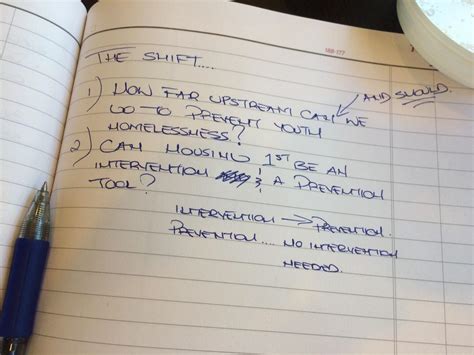 THE SHIFT....
1) HOW FAR UPSTREAM CAN WE
AND SHOULD
GO TO PREVENT YOUTH
HOMELESSNESS?
2) CAN HOUSING 1ST BE AN
INTERVENTION & A PREVENTION
TOOL?
INTERVENTION → PREVENTION.
PREVENTION.... NO INTERVENTION
NEEDED.